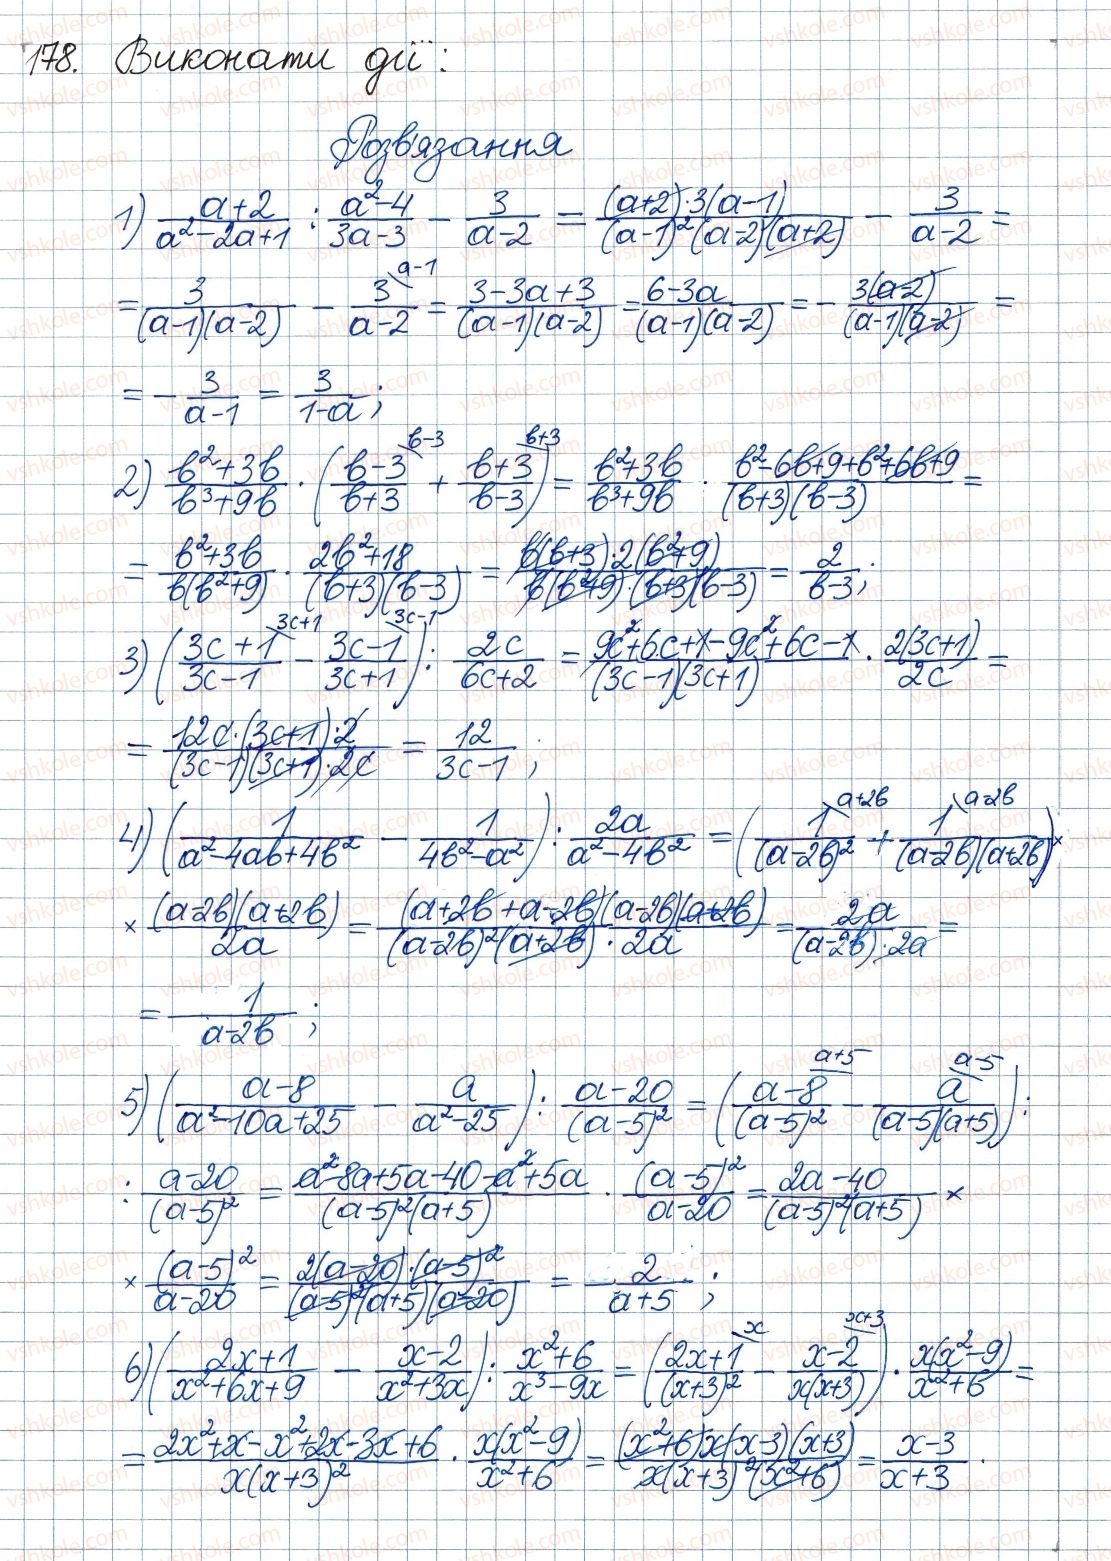 178. Виконати дії:
Розв'язання
1) (a+2)/(a²-2a+1) : (a²-4)/(3a-3) - 3/(a-2) = ((a+2)·3(a-1))/((a-1)²(a-2)(a+2)) - 3/(a-2) =
= 3/((a-1)(a-2)) - 3/(a-2) \a-1 = (3-3a+3)/((a-1)(a-2)) = (6-3a)/((a-1)(a-2)) = - 3(a-2)/((a-1)(a-2)) =
= - 3/(a-1) = 3/(1-a);
2) (в²+3в)/(в³+9в) · ((в-3)/(в+3) \в-3 + (в+3)/(в-3) \в+3) = (в²+3в)/(в³+9в) · (в²-6в+9+в²+6в+9)/((в+3)(в-3)) =
= (в²+3в)/(в(в²+9)) · (2в²+18)/((в+3)(в-3)) = (в(в+3)·2(в²+9))/(в(в²+9)·(в+3)(в-3)) = 2/(в-3);
3) ((3c+1)/(3c-1) \3c+1 - (3c-1)/(3c+1) \3c-1) : 2c/(6c+2) = (9c²+6c+1-9c²+6c-1)/((3c-1)(3c+1)) · 2(3c+1)/2c =
= (12c·(3c+1)·2)/((3c-1)(3c+1)·2c) = 12/(3c-1);
4) (1/(a²-4aв+4в²) - 1/(4в²-a²)) : 2a/(a²-4в²) = (1/(a-2в)² \a+2в + 1/((a-2в)(a+2в)) \a-2в) ×
× ((a-2в)(a+2в))/2a = ((a+2в+a-2в)(a-2в)(a+2в))/((a-2в)²(a+2в)·2a) = 2a/((a-2в)·2a) =
= 1/(a-2в);
5) ((a-8)/(a²-10a+25) - a/(a²-25)) : (a-20)/(a-5)² = ((a-8)/(a-5)² \a+5 - a/((a-5)(a+5)) \a-5) :
: (a-20)/(a-5)² = (a²-8a+5a-40-a²+5a)/((a-5)²(a+5)) · (a-5)²/(a-20) = (2a-40)/((a-5)²(a+5)) ×
× (a-5)²/(a-20) = (2(a-20)·(a-5)²)/((a-5)²(a+5)(a-20)) = 2/(a+5);
6) ((2x+1)/(x²+6x+9) - (x-2)/(x²+3x)) : (x²+6)/(x³-9x) = ((2x+1)/(x+3)² \x - (x-2)/(x(x+3)) \x+3) · x(x²-9)/(x²+6) =
= (2x²+x-x²+2x-3x+6)/(x(x+3)²) · x(x²-9)/(x²+6) = ((x²+6)x(x-3)(x+3))/(x(x+3)²(x²+6)) = (x-3)/(x+3).